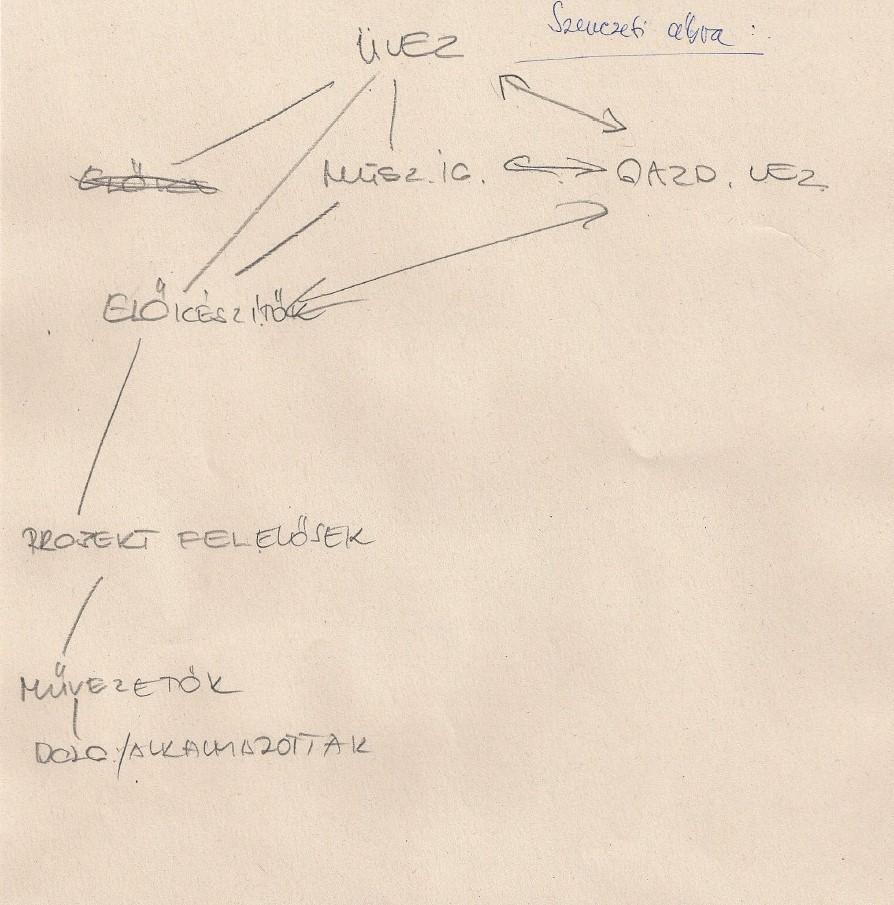 Szervezeti ábra :
ÜVEZ
MŰSZ. IG.
GAZD. VEZ.
ELŐKÉSZÍTŐK
PROJEKT FELELŐSEK
MŰVEZETŐK
DOLG./ALKALMAZOTTAK